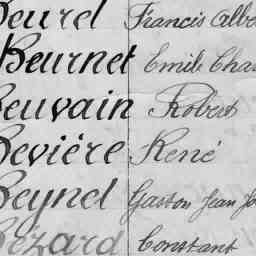 Beurel Francis Albe
Beurnet Emile Cha
Beuvain Robert
Bevière René
Beynel Gaston Jean Jo
Bézard Constant